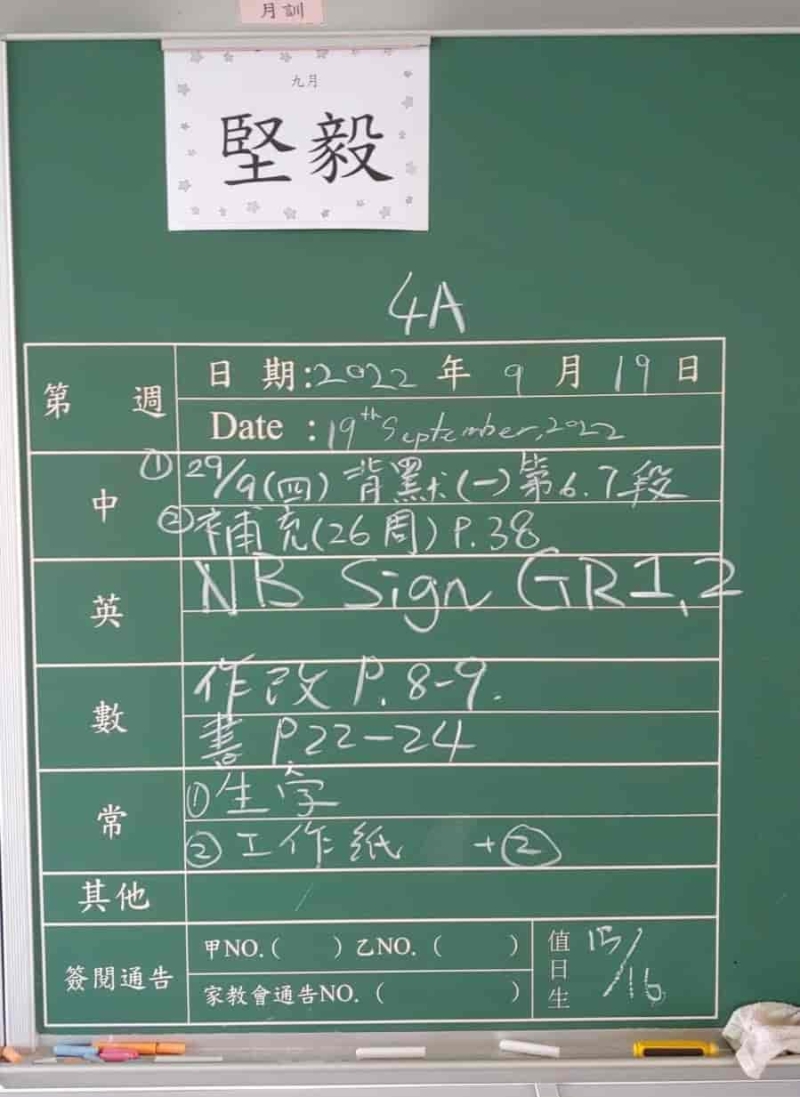 月訓
九月
堅毅
4A
第 週
日 期:2022 年 9 月 19 日
Date : 19th September, 2022
中
① 29/9(四) 背默(一)第6.7段
②補充(26周) P.38
英
NB Sign GR1,2
數
作改 P. 8-9.
書 P22-24
常
①生字
②工作紙 +②
其他
簽閱通告
甲NO.( ) 乙NO.( )
家教會通告NO.( )
值日生
15/16